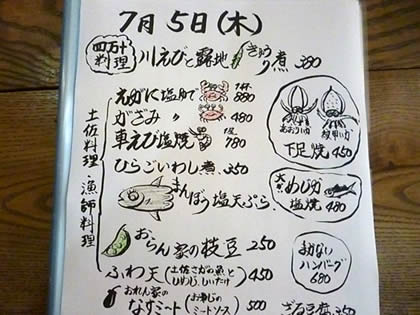 7月5日(木)
四万十料理 川えびと露地きゅうり煮 380
土佐料理・漁師料理
えがに塩ゆで 1杯 880
がざみ 〃 480
車えび塩焼 780
ひらごいわし煮 350
まんぼう塩天ぷら
おらん家の枝豆 250
ふわ天(土佐さが の魚と ひめじ、しいたけ) 450
おれん家の なすミート ミートソース 500
あおりいか 紋甲いか
下足焼 450
大 めじか 塩焼 480
ハンバーグ 680
ざる豆腐 350